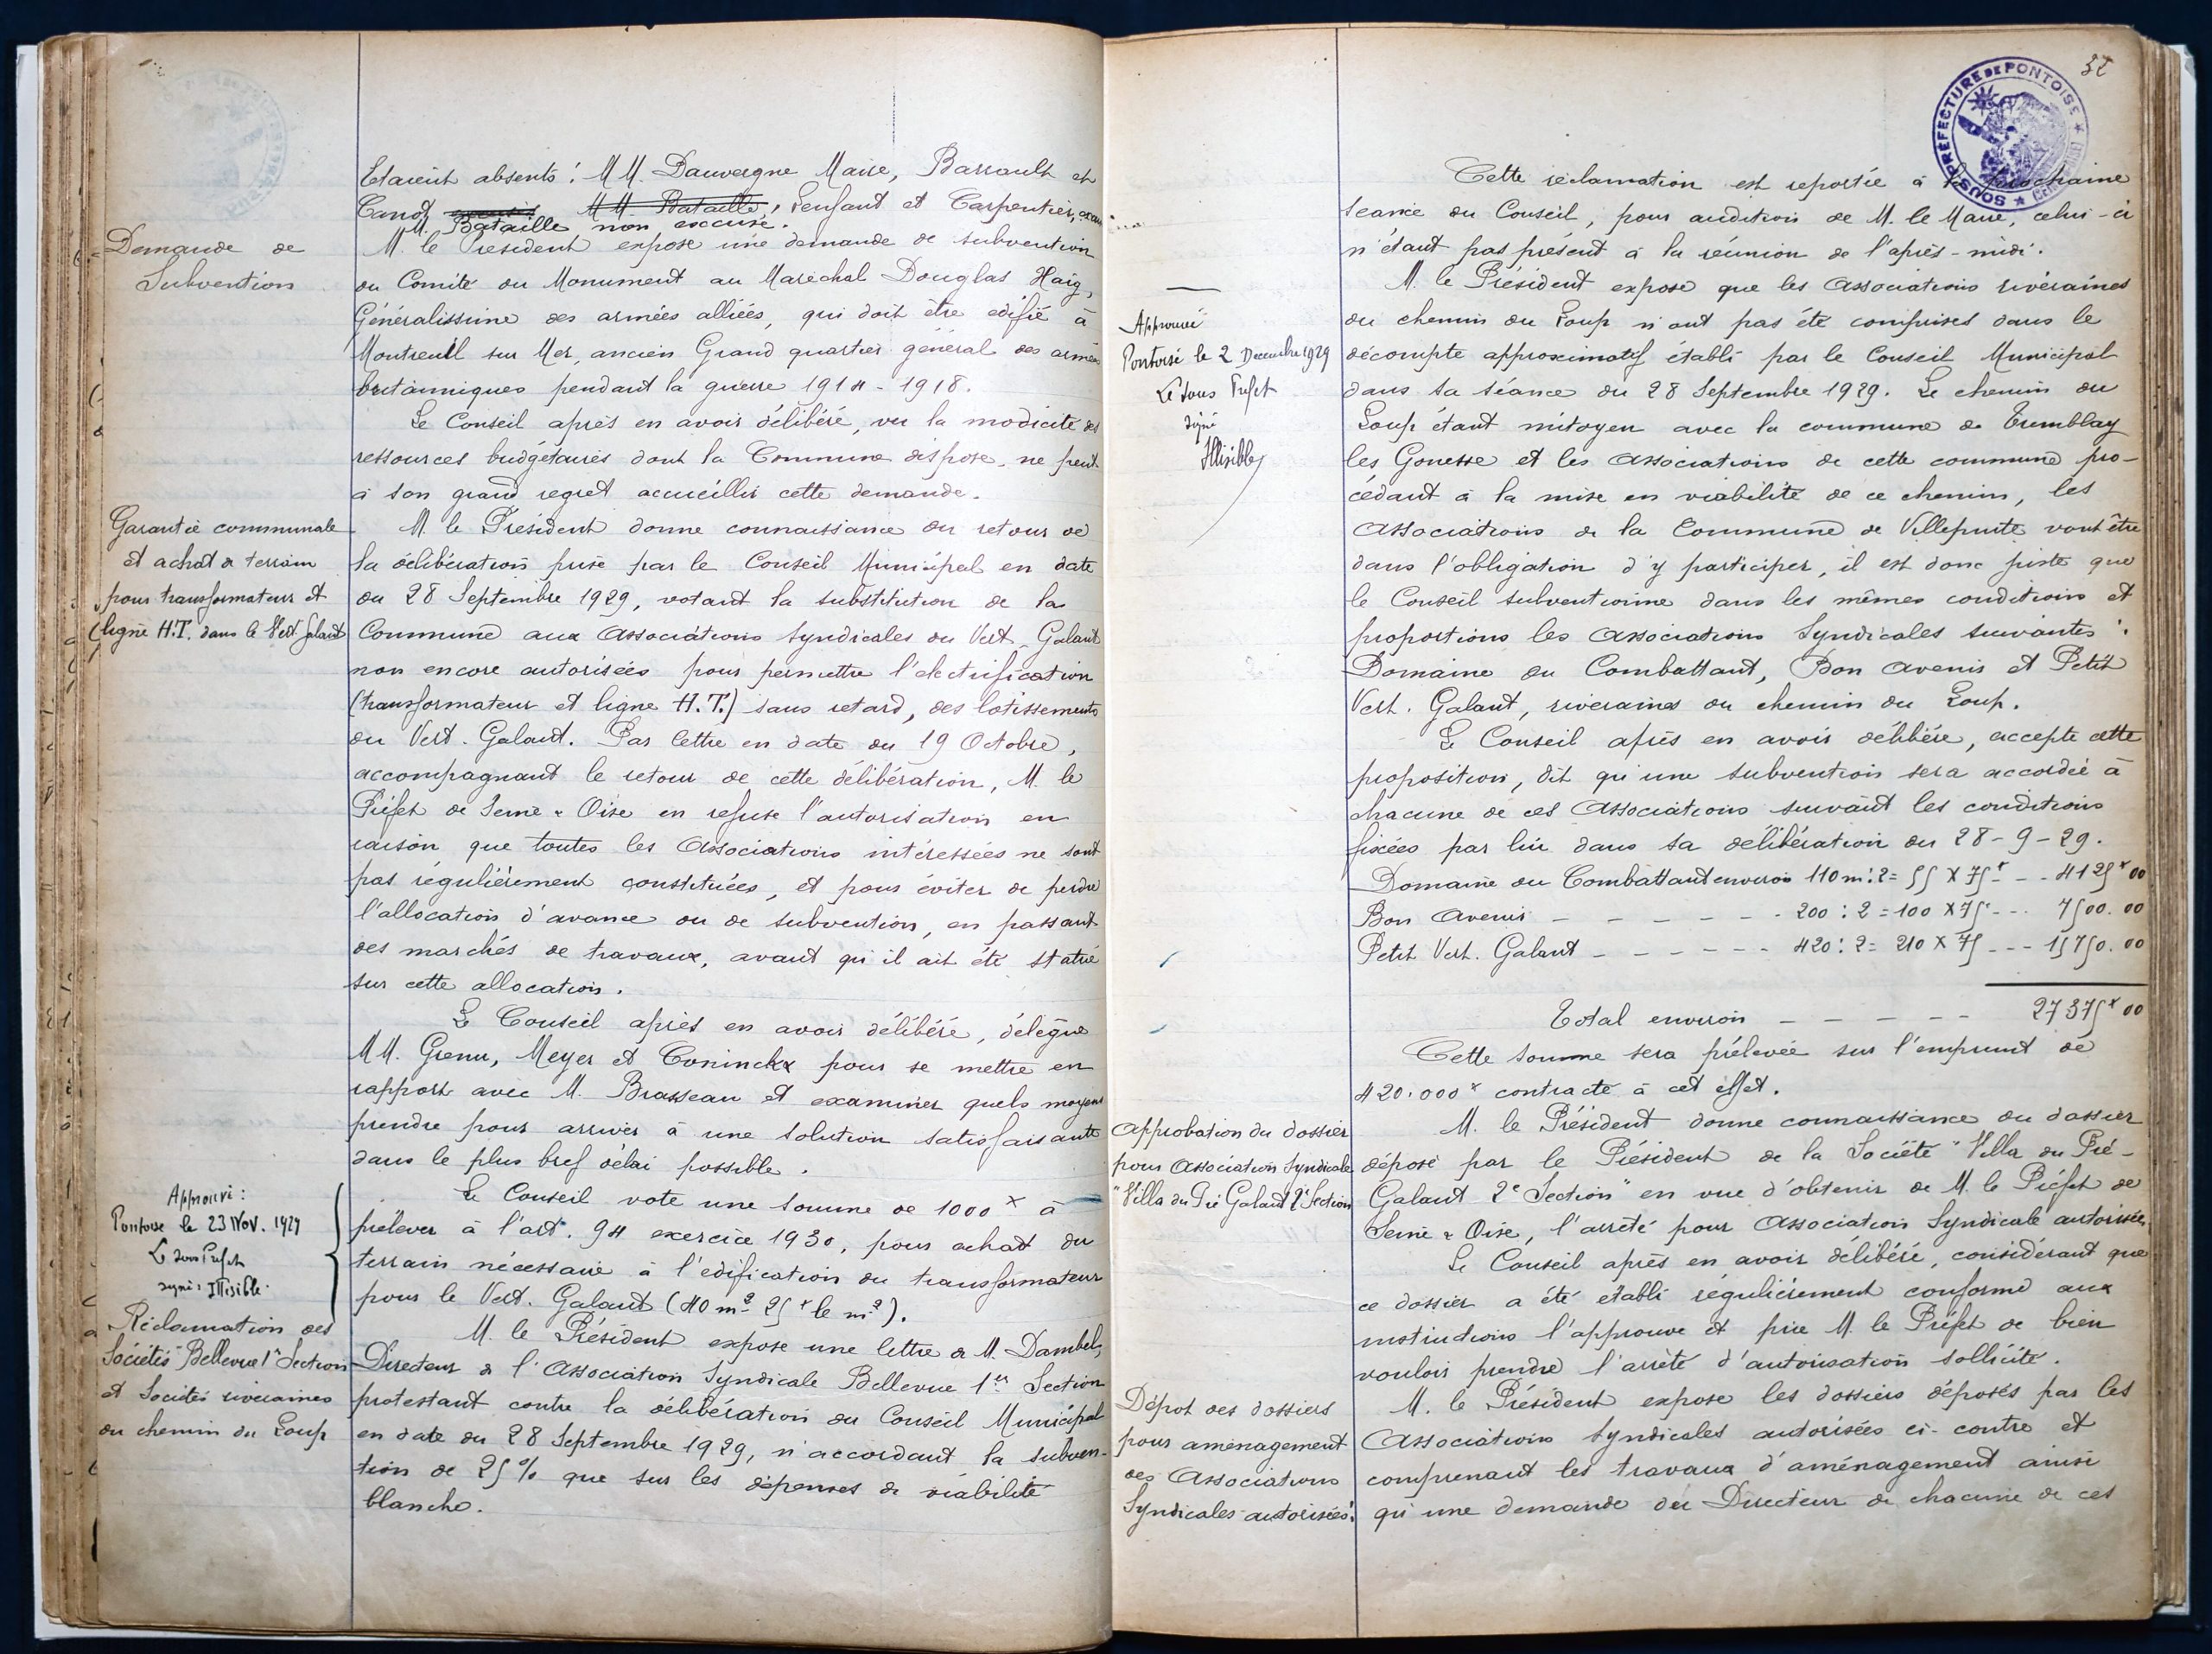 Etaient absents : MM. Dauvergne Maire, Barrault et
Canot MM. Bataille, Lenfant et Carpentier,
M. Bataille non excusé.
Demande de
Subvention
M. le Président expose une demande de subvention
du Comité du Monument au Maréchal Douglas Haig,
Généralissime des armées alliées, qui doit être édifié à
Montreuil sur Mer, ancien Grand quartier général des armées
britanniques pendant la guerre 1914-1918.
Le Conseil après en avoir délibéré, vu la modicité des
ressources budgétaires dont la Commune dispose, ne peut
à son grand regret accueillir cette demande.
Garantie communale
et achat de terrain
pour transformateur et
ligne H.T. dans le Vert Galant
M. le Président donne connaissance du retour de
la délibération prise par le Conseil Municipal en date
du 28 Septembre 1929, votant la substitution de la
Commune aux Associations Syndicales du Vert-Galant
non encore autorisées pour permettre l'électrification
(transformateur et ligne H.T.) sans retard, des lotissements
du Vert-Galant. Par lettre en date du 19 Octobre,
accompagnant le retour de cette délibération, M. le
Préfet de Seine & Oise en refuse l'autorisation en
raison que toutes les Associations intéressées ne sont
pas régulièrement constituées, et pour éviter de perdre
l'allocation d'avance ou de subvention, en passant
des marchés de travaux, avant qu'il ait été statué
sur cette allocation.
Le Conseil après en avoir délibéré, délègue
MM. Grenu, Meyer et Coninckx pour se mettre en
rapport avec M. Brasseau et examiner quels moyens
prendre pour arriver à une solution satisfaisante
dans le plus bref délai possible.
Approuvé :
Pontoise le 23 Nov. 1929
Le Sous Préfet
signé : Illisible.
Le Conseil vote une somme de 1000 x à
prélever à l'art. 94 exercice 1930, pour achat du
terrain nécessaire à l'édification du transformateur
pour le Vert-Galant (40 m² 25 x le m²).
Réclamation des
Sociétés Bellevue 1re Section
et Sociétés riveraines
du chemin du Loup
M. le Président expose une lettre de M. Dambel,
Directeur de l'Association Syndicale Bellevue 1re Section
protestant contre la délibération du Conseil Municipal
en date du 28 Septembre 1929, n'accordant la subven-
tion de 25 % que sur les dépenses de viabilité
blanche.
SOUS-PRÉFECTURE DE PONTOISE
Cette réclamation est reportée à la prochaine
séance du Conseil, pour audition de M. le Maire, celui-ci
n'étant pas présent à la réunion de l'après-midi.
Approuvé
Pontoise le 2 Decembre 1929
Le Sous Préfet
signé
Illisible
M. le Président expose que les Associations riveraines
du chemin du Loup n'ont pas été comprises dans le
décompte approximatif établi par le Conseil Municipal
dans sa séance du 28 Septembre 1929. Le chemin du
Loup étant mitoyen avec la commune de Tremblay
les Gonesse et les Associations de cette commune pro-
cédant à la mise en viabilité de ce chemin, les
Associations de la Commune de Villepinte vont être
dans l'obligation d'y participer, il est donc juste que
le Conseil subventionne dans les mêmes conditions et
proportions les Associations Syndicales suivantes :
Domaine du Combattant, Bon Avenir et Petit
Vert-Galant, riveraines du chemin du Loup.
Le Conseil après en avoir délibéré, accepte cette
proposition, dit qu'une subvention sera accordée à
chacune de ces Associations suivant les conditions
fixées par lui dans sa délibération du 28-9-29.
Domaine du Combattant environ 110 m : 2 = 55 X 75 x - - 4125 x 00
Bon Avenir - - - - - - 200 : 2 = 100 X 75 x - - 7500.00
Petit Vert-Galant - - - - - 420 : 2 = 210 X 75 - - - 15750.00
Total environ - - - - - 27375 x 00
Cette somme sera prélevée sur l'emprunt de
420.000 x contracté à cet effet.
Approbation du dossier
pour Association Syndicale
"Villa du Pré Galant 2e Section
M. le Président donne connaissance du dossier
déposé par le Président de la Société "Villa du Pré-
Galant 2e Section" en vue d'obtenir de M. le Préfet de
Seine & Oise, l'arrêté pour Association Syndicale autorisée.
Le Conseil après en avoir délibéré, considérant que
ce dossier a été établi régulièrement conforme aux
instructions l'approuve et prie M. le Préfet de bien
vouloir prendre l'arrêté d'autorisation sollicité.
Dépot des dossiers
pour aménagement
des Associations
Syndicales autorisées :
M. le Président expose les dossiers déposés par les
Associations Syndicales autorisées ci-contre et
comprenant les travaux d'aménagement ainsi
qu'une demande du Directeur de chacune de ces